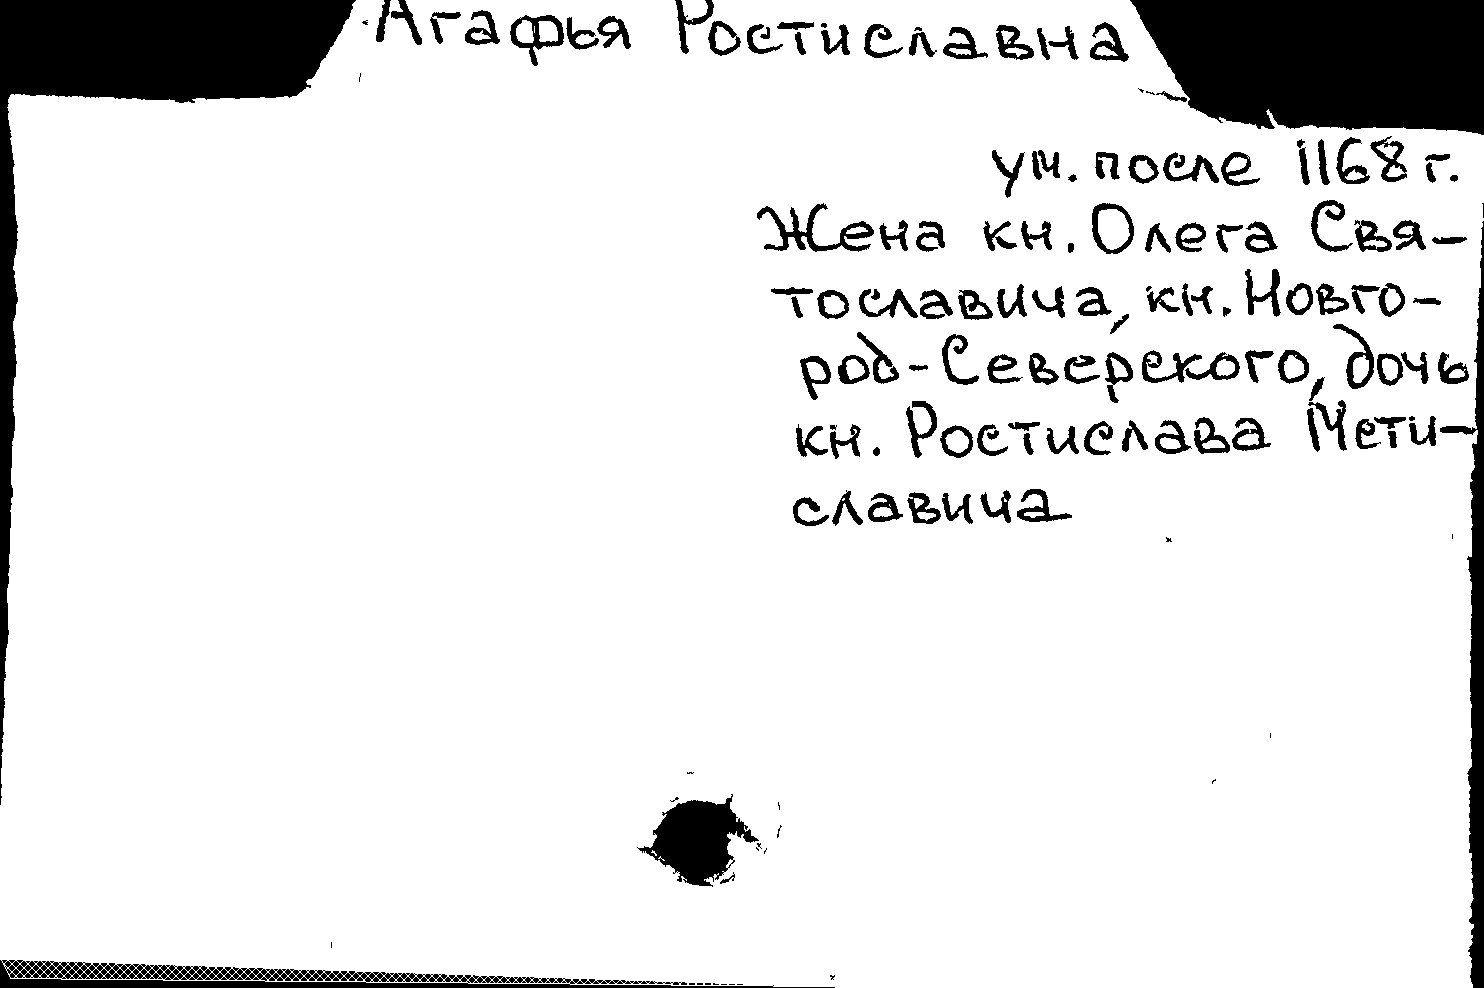 Агафья Ростиславна
ум. после 1168 г.
Жена кн. Олега Свя-
тославича, кн. Новго-
род-Северского, дочь
кн. Ростислава Мсти-
славича